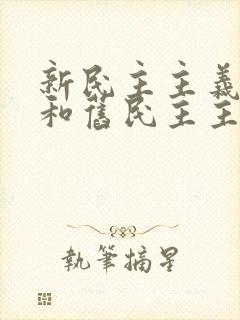 新民主主義
和舊民主主
執筆摘星